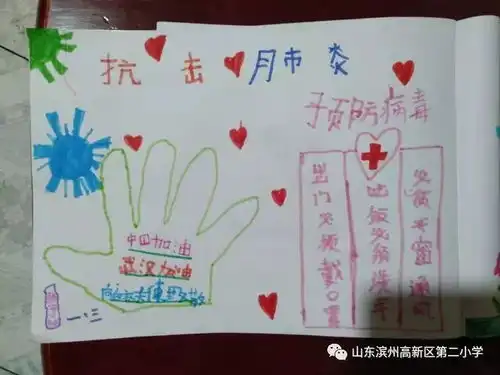 抗击肺炎
预防病毒
出门必须戴口罩
吃饭必须洗手
必须开窗通风
中国加油
武汉加油
向白衣天使致敬
一.三
山东滨州高新区第二小学